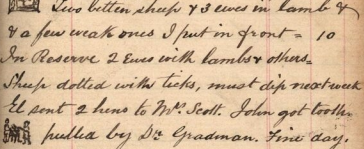 Two bitten sheep & 3 ewes in lamb &
& a few weak ones I put in front = 10
In Reserve 2 Ewes with lambs & others -
Sheep dotted with ticks, must dip next week
El sent 2 hens to Mrs. Scott. John got tooth
pulled by Dr. Gradman. Fine day.